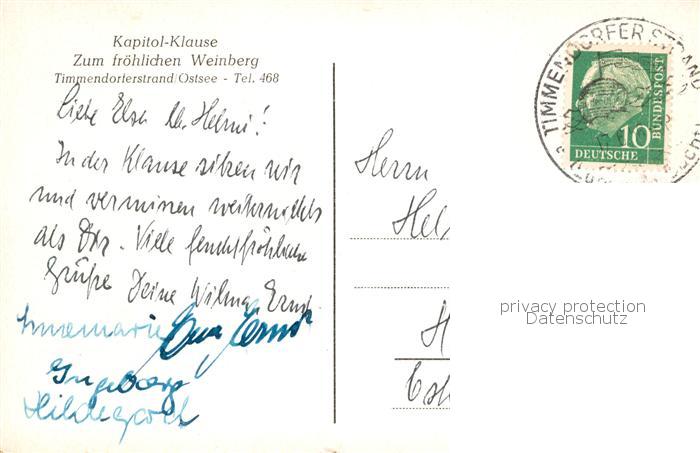 Kapitol-Klause
Zum fröhlichen Weinberg
Timmendorferstrand/Ostsee - Tel. 468
Liebe Elsa u. Helmi!
In der Klause sitzen wir
und vermissen weiter nichts
als Dich. Viele feuchtfröhliche
Grüße Deine Wilma, Ernst
Annemarie
Ingeborg
Hildegard
Herrn
Hel
H
TIMMENDORFER STRAND
10
DEUTSCHE
BUNDESPOST
privacy protection
Datenschutz